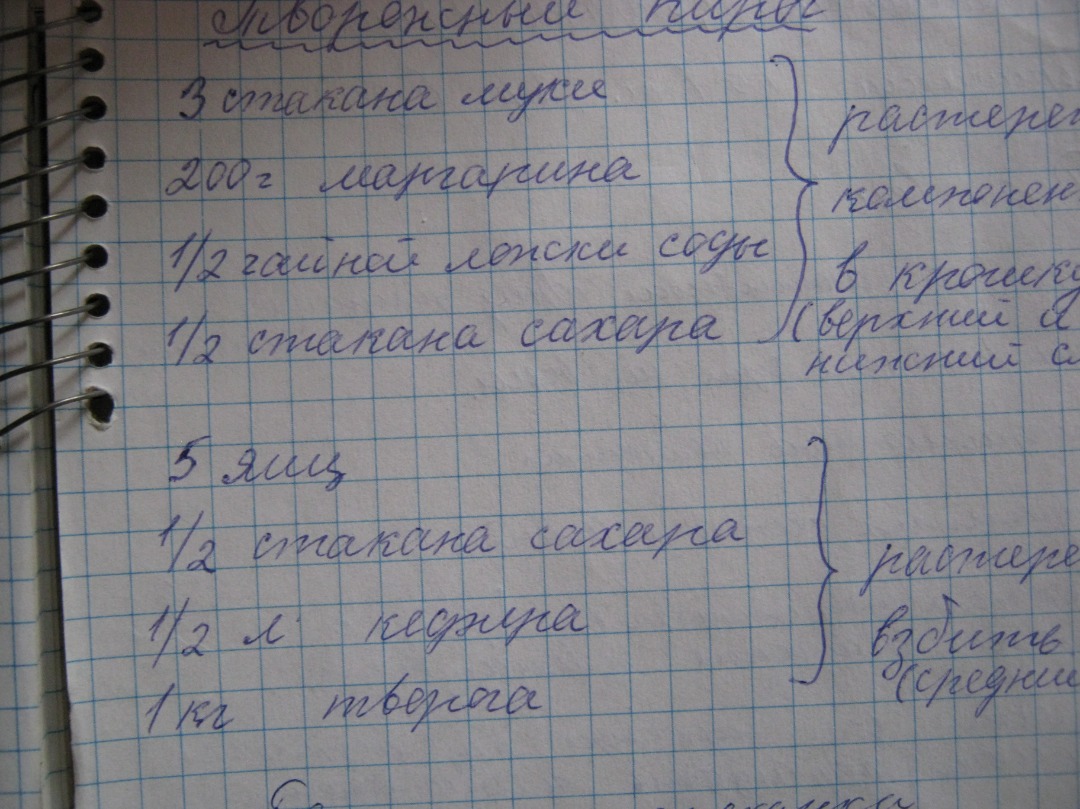 Творожный пирог
3 стакана муки
200 г маргарина
1/2 чайной ложки соды
1/2 стакана сахара
растерет
компонен
в крошку
(верхний и
нижний сл
5 яиц
1/2 стакана сахара
1/2 л кефира
1 кг творога
растере
взбить
(средний